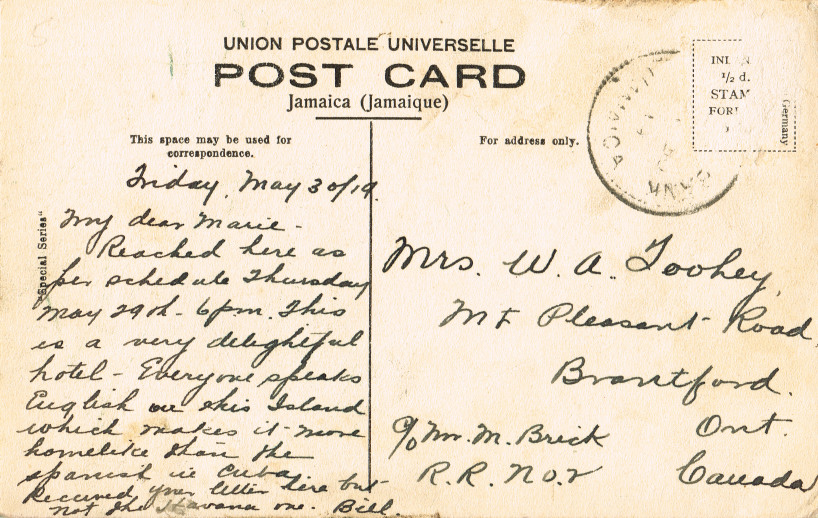 UNION POSTALE UNIVERSELLE
POST CARD
Jamaica (Jamaique)
This space may be used for
correspondence.
For address only.
½ d.
Germany
JAMAICA
"Special Series"
Friday, May 30/19.
My dear Marie -
Reached here as
per schedule Thursday
May 29th - 6 pm. This
is a very delightful
hotel - Everyone speaks
English on this Island
which makes it more
homelike than the
spanish in Cuba.
Received your letter here but
not the Havana one. Bill.
Mrs. W. A. Toohey,
Mt Pleasant Road,
Brantford.
Ont.
c/o Mr. M. Brick
R.R. No. 2
Canada